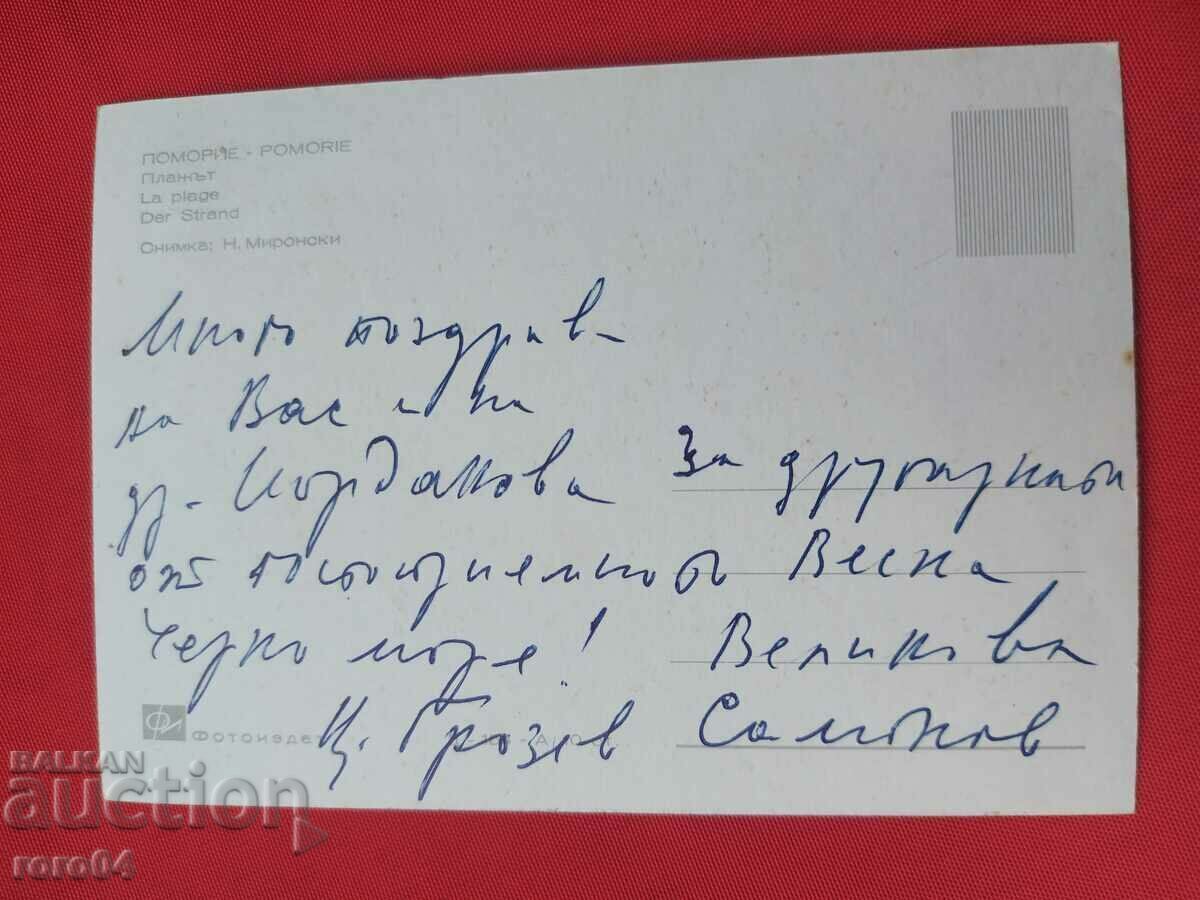 ПОМОРИЕ - POMORIE
Плажът
La plage
Der Strand
Снимка: Н. Миронски
Много поздрава
на Вас и на
др. Йорданова
от гостоприемното
Черно море!
Ц. Грозев
За другарката
Весна
Великова
Самоков
Фотоиздат
BALKAN
auction
roro04